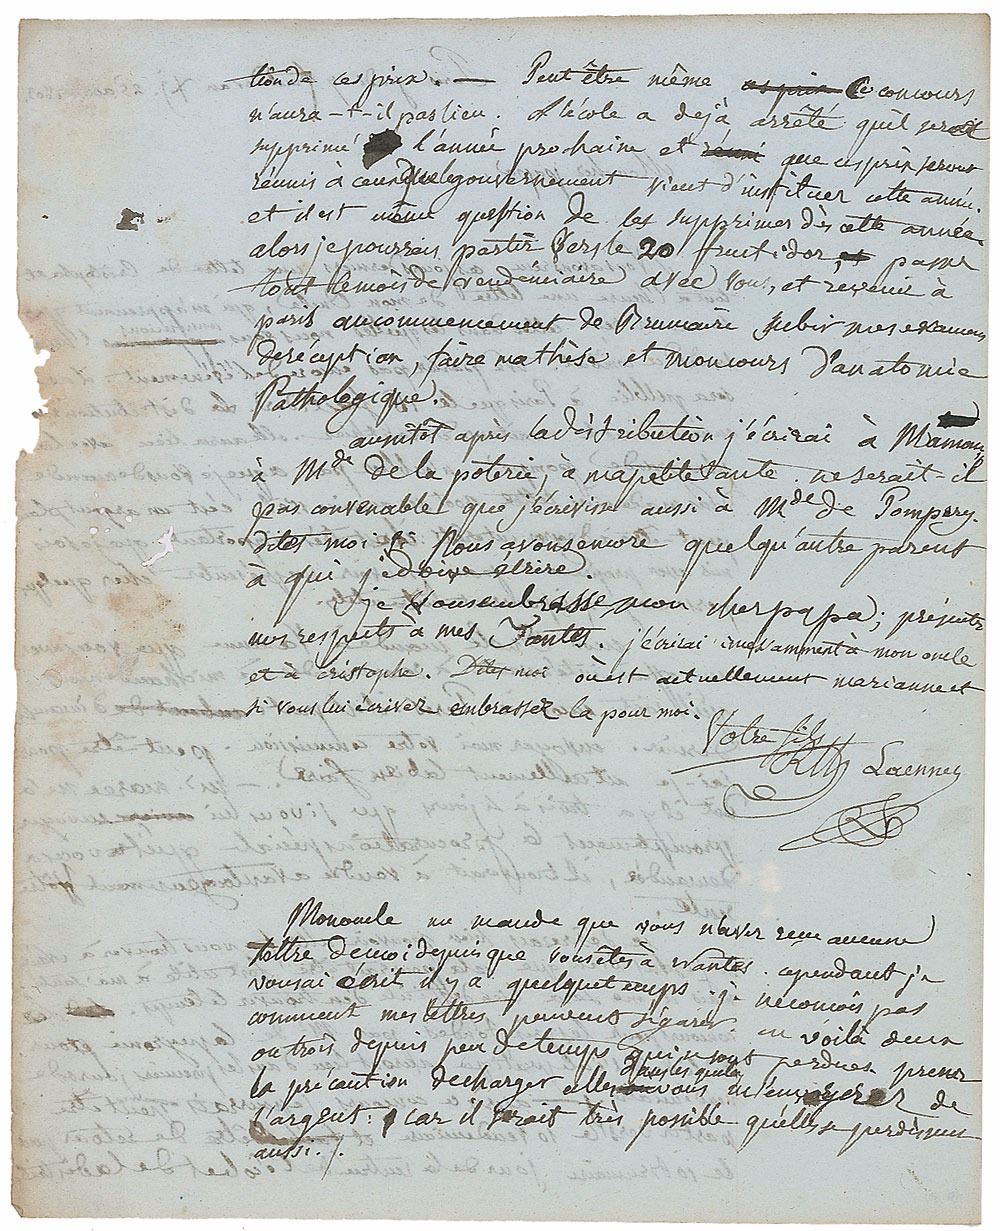 tion de ces prix — Peut être même ces prix le concours
n'aura-t-il pas lieu. l'école a déjà arrêté quil serait
supprimé l'année prochaine et réuni que ces prix seront
réunis à ceux que le gouvernement vient d'instituer cette année.
et il est même question de les supprimer dès cette année.
alors je pourrais partir vers le 20 fructidor, et passer
tout le mois de vendémiaire avec vous, et revenir à
paris au commencement de Brumaire subir mes examens
de réception, faire ma thèse et mon cours d'anatomie
Pathologique.
aussitôt après la distribution j'écrirai à Maman
à Mde de la poterie, à ma petite tante. ne serait-il
pas convenable que j'écrivisse aussi à Mde de Pompery.
dites moi si Nous avons encore quelqu'autre parent
à qui je doive écrire.
je vous embrasse mon cher papa; présentez
mes respects à mes Tantes. j'écrirai incessamment à mon oncle
et à cristophe. Dites moi où est actuellement marianne et
si vous lui écrivez embrassez la pour moi.
Votre fils
RTH Laennec
Mon oncle me mande que vous n'avez reçu aucune
lettre de moi depuis que vous êtes à Nantes. cependant je
vous ai écrit il y a quelque temps. je ne conçois pas
comment mes lettres peuvent s'égarer. en voilà deux
ou trois depuis peu de temps qui se sont perdues. prenez
la précaution de charger celles dans les quelles vous m'enverrez de
l'argent: car il serait très possible qu'elles se perdissent
aussi.